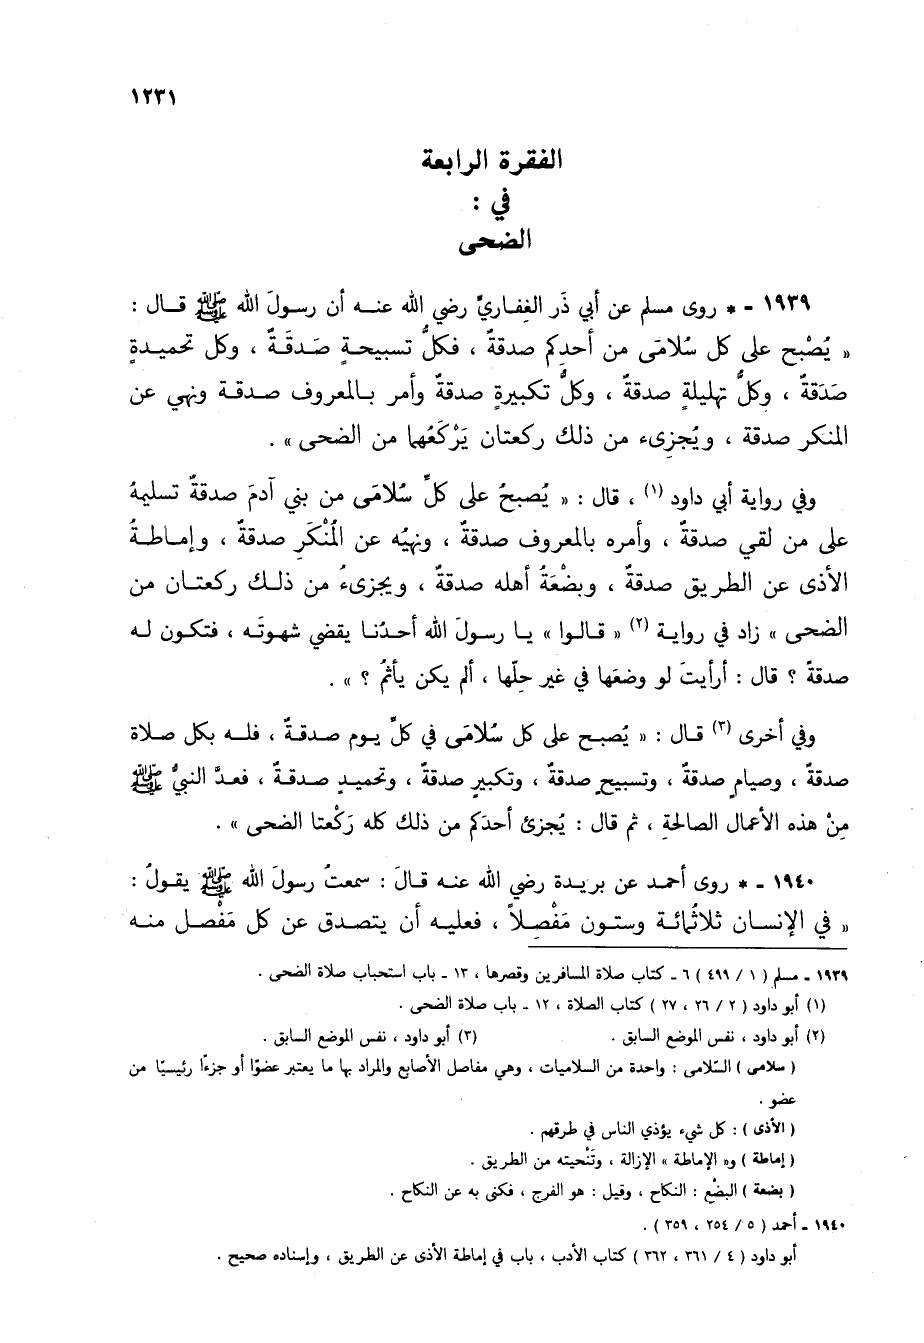 ١٢٣١
الفقرة الرابعة
في :
الضحى
١٩٣٩ - * روى مسلم عن أبي ذَر الغِفاريِّ رضي الله عنه أن رسولَ الله ﷺ قال :
« يُصْبح على كل سُلامَى من أحدِكم صدقةٌ ، فكلُّ تسبيحةٍ صَدقَةٌ ، وكل تحميدةٍ
صَدَقةٌ ، وكلُّ تهليلةٍ صدقةٌ ، وكلُّ تكبيرةٍ صدقةٌ وأمر بالمعروف صدقة ونهي عن
المنكر صدقة ، ويُجزِىء من ذلك ركعتان يَرْكَعُهما من الضحى » .
وفي رواية أبي داود (١) ، قال : « يُصبحُ على كلِّ سُلامَى من بني آدمَ صدقةٌ تسليمهُ
على من لقي صدقةٌ ، وأمره بالمعروف صدقةٌ ، ونهيُه عن المُنْكَرِ صدقةٌ ، وإماطةُ
الأذى عن الطريق صدقةٌ ، وبضْعَةُ أهله صدقةٌ ، ويجزىءُ من ذلك ركعتان من
الضحى » زاد في رواية (٢) « قالوا » يا رسولَ الله أحدُنا يقضي شهوتَه ، فتكون له
صدقةً ؟ قال : أرأيتَ لو وضعَها في غير حلِّها ، ألم يكن يأثمُ ؟ » .
وفي أخرى (٣) قال : « يُصبح على كل سُلامَى في كلِّ يوم صدقةٌ ، فله بكل صلاة
صدقةٌ ، وصيامٍ صدقةٌ ، وتسبيحٍ صدقةٌ ، وتكبيرٍ صدقةٌ ، وتحميدٍ صدقةٌ ، فعدَّ النبيُّ ﷺ
مِنْ هذه الأعمال الصالحة ، ثم قال : يُجزئ أحدَكم من ذلك كله رَكْعتا الضحى » .
١٩٤٠ - * روى أحمد عن بريدة رضي الله عنه قالَ : سمعتُ رسولَ الله ﷺ يقولُ :
« في الإنسان ثلاثُمائة وستون مَفْصِلاً ، فعليه أن يتصدق عن كل مَفْصل منه
١٩٣٩ - مسلم ( ١ / ٤٩٩ ) ٦ - كتاب صلاة المسافرين وقصرها ، ١٣ - باب استحباب صلاة الضحى .
(١) أبو داود ( ٢ / ٢٦ ، ٢٧ ) كتاب الصلاة ، ١٢ - باب صلاة الضحى .
(٢) أبو داود ، نفس الموضع السابق . (٣) أبو داود ، نفس الموضع السابق .
( سلامى ) السّلامى : واحدة من السلاميات ، وهي مفاصل الأصابع والمراد بها ما يعتبر عضوًا أو جزءًا رئيسيًا من
عضو .
( الأذى ) : كل شيء يؤذي الناس في طرقهم .
( إماطة ) و« الإماطة » الإزالة ، وتَنْحيته من الطريق .
( بضعة ) البضْع : النكاح ، وقيل : هو الفرج ، فكنى به عن النكاح .
١٩٤٠ - أحمد ( ٥ / ٢٥٤ ، ٣٥٩ ) .
أبو داود ( ٤ / ٣٦١ ، ٣٦٢ ) كتاب الأدب ، باب في إماطة الأذى عن الطريق ، وإسناده صحيح .